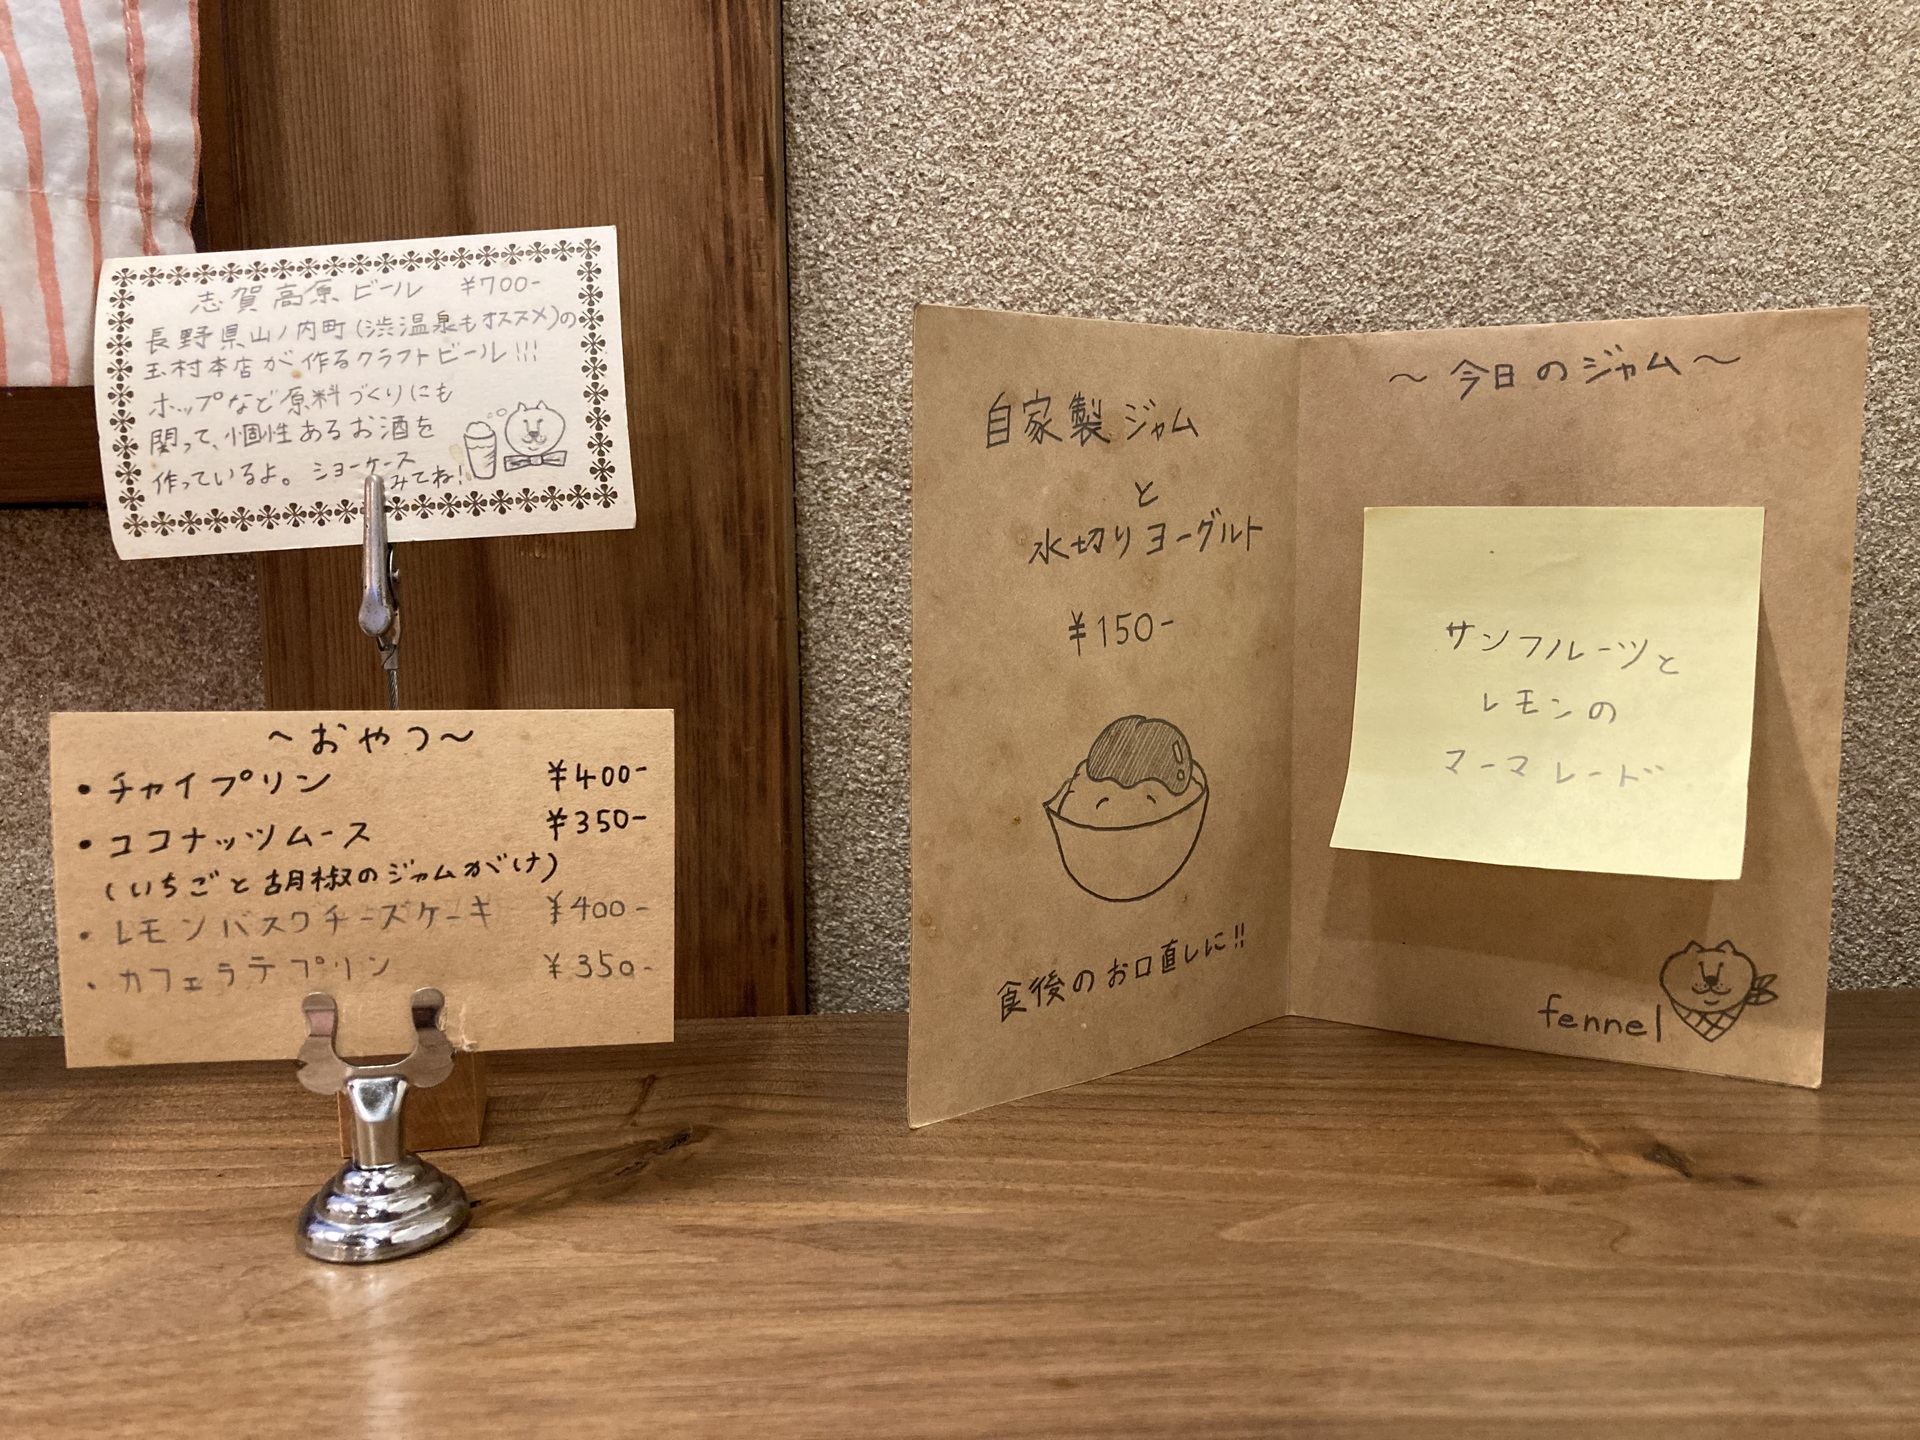 志賀高原ビール ¥700-
長野県山ノ内町(渋温泉もオススメ)の
玉村本店が作るクラフトビール!!!
ホップなど原料づくりにも
関って、個性あるお酒を
作っているよ。ショーケース
みてね!
〜おやつ〜
・チャイプリン ¥400-
・ココナッツムース ¥350-
(いちごと胡椒のジャムがけ)
・レモンバスクチーズケーキ ¥400-
・カフェラテプリン ¥350-
自家製ジャム
と
水切りヨーグルト
¥150-
食後のお口直しに!!
〜今日のジャム〜
サンフルーツと
レモンの
マーマレード
fennel